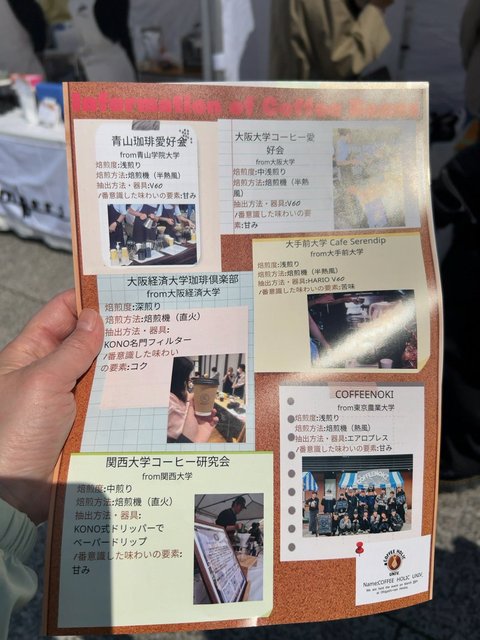 Information of Coffee Beans
青山珈琲愛好会
from青山学院大学
焙煎度:浅煎り
焙煎方法:焙煎機（半熱風）
抽出方法・器具:V60
1番意識した味わいの要素:甘み
大阪大学コーヒー愛
好会
from大阪大学
焙煎度:中浅煎り
焙煎方法:焙煎機（半熱
風）
抽出方法・器具:V60
1番意識した味わいの要素:
甘み
大手前大学 Cafe Serendip
from大手前大学
焙煎度:浅煎り
焙煎方法:焙煎機（半熱風）
抽出方法・器具:HARIO V60
1番意識した味わいの要素:苦味
大阪経済大学珈琲倶楽部
from大阪経済大学
焙煎度:深煎り
焙煎方法:焙煎機（直火）
抽出方法・器具:
KONO名門フィルター
1番意識した味わい
の要素:コク
COFFEENOKI
from東京農業大学
焙煎度:浅煎り
焙煎方法:焙煎機（熱風）
抽出方法・器具:エアロプレス
1番意識した味わいの要素:甘み
関西大学コーヒー研究会
from関西大学
焙煎度:中煎り
焙煎方法:焙煎機（直火）
抽出方法・器具:
KONO式ドリッパーで
ペーパードリップ
1番意識した味わいの要素:
甘み
COFFEE HOLIC
UNIV.
Name:COFFEE HOLIC UNIV.